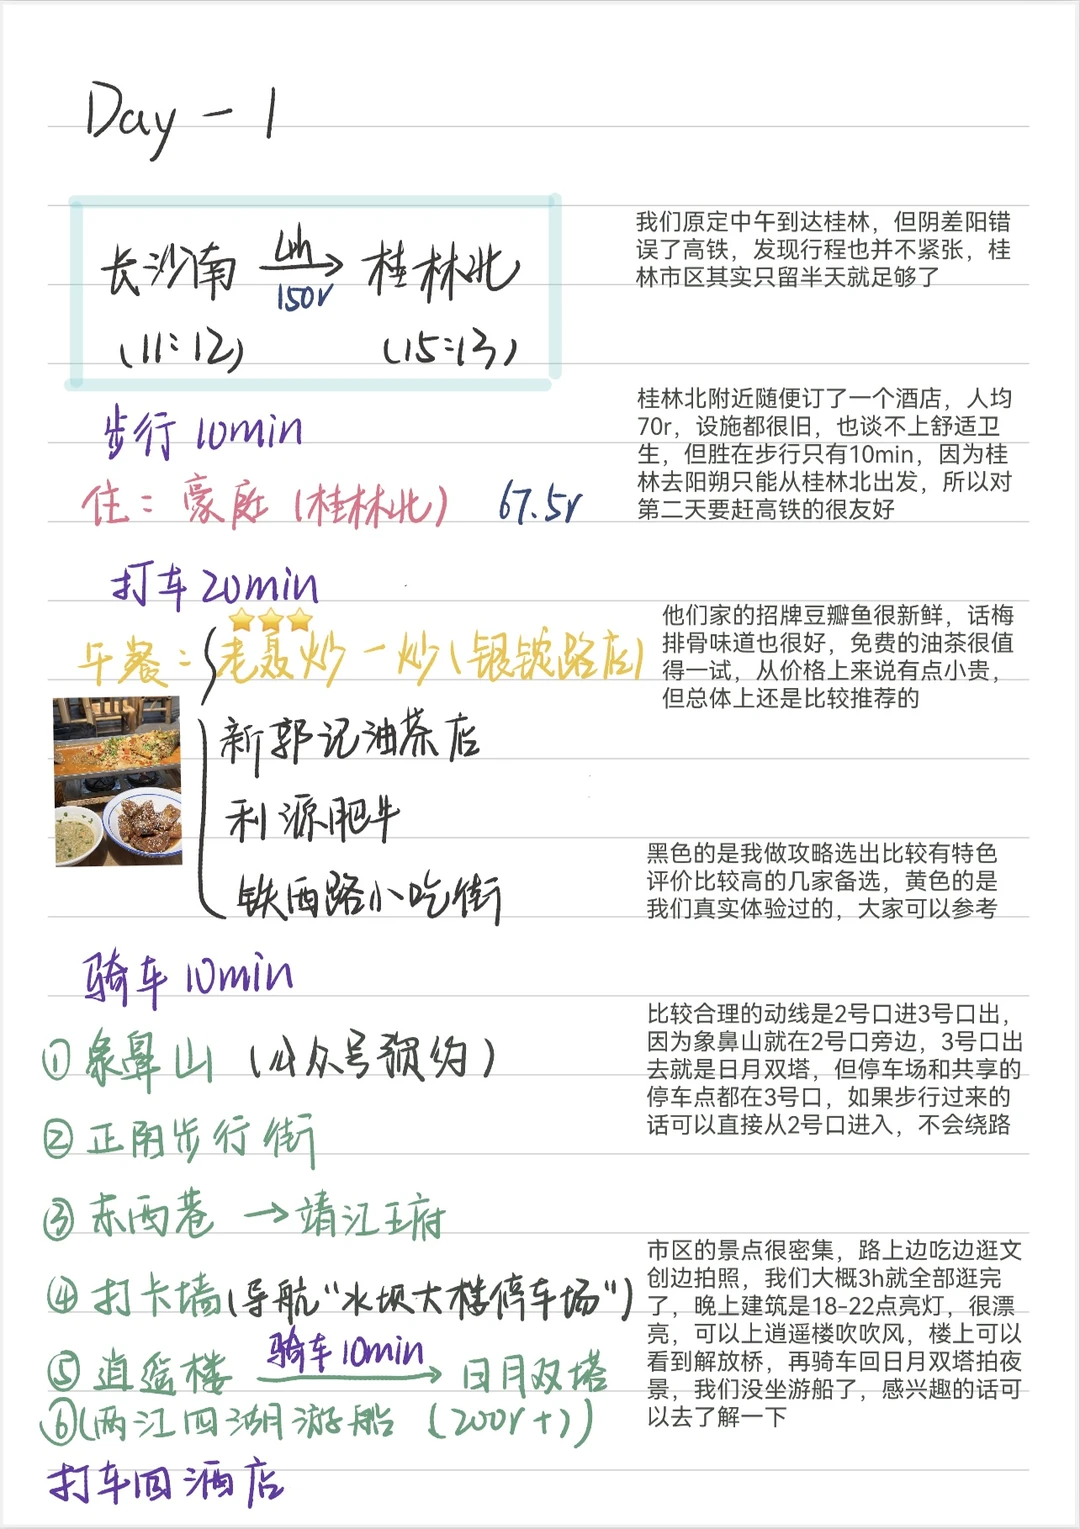 Day - 1
我们原定中午到达桂林，但阴差阳错
误了高铁，发现行程也并不紧张，桂
林市区其实只留半天就足够了
长沙南 4h 150r 桂林北
(11:12) (15:13)
步行 10min
住：豪庭(桂林北) 67.5r
桂林北附近随便订了一个酒店，人均
70r，设施都很旧，也谈不上舒适卫
生，但胜在步行只有10min，因为桂
林去阳朔只能从桂林北出发，所以对
第二天要赶高铁的很友好
打车 20min
午餐：老聂炒一炒(银锭路店)
他们家的招牌豆瓣鱼很新鲜，话梅
排骨味道也很好，免费的油茶很值
得一试，从价格上来说有点小贵，
但总体上还是比较推荐的
新郭记油茶店
利源肥牛
铁西路小吃街
黑色的是我做攻略选出比较有特色
评价比较高的几家备选，黄色的是
我们真实体验过的，大家可以参考
骑车 10min
①象鼻山 (公众号预约)
②正阳步行街
比较合理的动线是2号口进3号口出，
因为象鼻山就在2号口旁边，3号口出
去就是日月双塔，但停车场和共享的
停车点都在3号口，如果步行过来的
话可以直接从2号口进入，不会绕路
③东西巷 → 靖江王府
④打卡墙(导航“水坝大楼停车场”)
⑤逍遥楼 骑车 10min 日月双塔
⑥(两江四湖游船 (200r+))
市区的景点很密集，路上边吃边逛文
创边拍照，我们大概3h就全部逛完
了，晚上建筑是18-22点亮灯，很漂
亮，可以上逍遥楼吹吹风，楼上可以
看到解放桥，再骑车回日月双塔拍夜
景，我们没坐游船了，感兴趣的话可
以去了解一下
打车回酒店